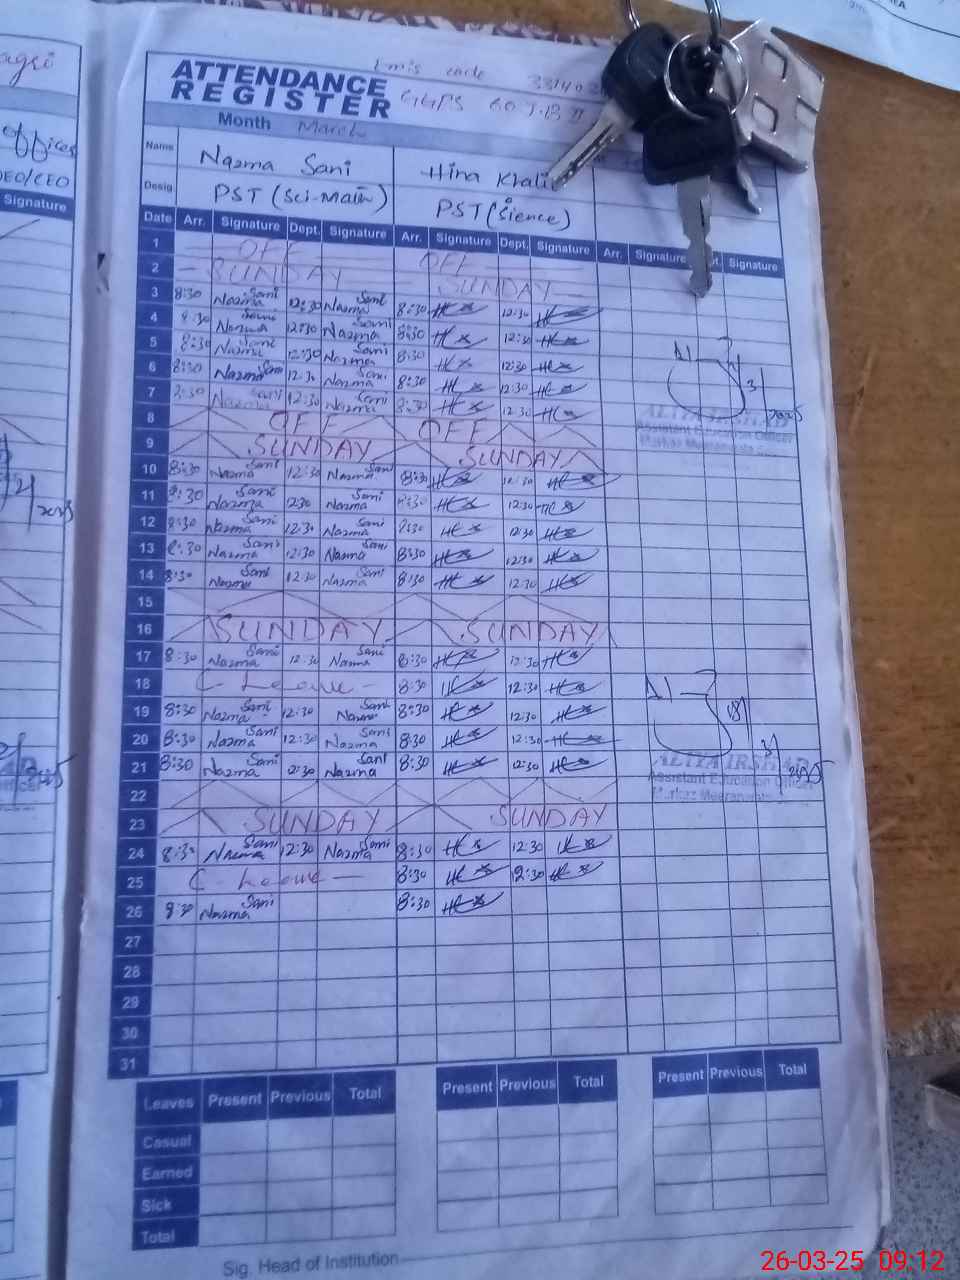 ATTENDANCE
REGISTER
Emis code
GGPS
Month March
Name Nazma Sani Hina Khalid
Desig PST (Sci-Math) PST (Sience)
Date Arr. Signature Dept. Signature Arr. Signature Dept. Signature Arr. Signature Signature
1 OFF OFF
2 SUNDAY SUNDAY
3 8:30 Nazma Sani 12:30 Nazma Sani 8:30 12:30
4 8:30 Nazma Sani 12:30 Nazma Sani 8:30 12:30
5 8:30 Nazma Sani 12:30 Nazma Sani 8:30 12:30
6 8:30 Nazma Sani 12:30 Nazma Sani 8:30 12:30
7 8:30 Nazma Sani 12:30 Nazma Sani 8:30 12:30
8 OFF OFF
9 SUNDAY SUNDAY
10 8:30 Nazma Sani 12:30 Nazma Sani 8:30 12:30
11 8:30 Nazma Sani 12:30 Nazma Sani 8:30 12:30
12 8:30 Nazma Sani 12:30 Nazma Sani 8:30 12:30
13 8:30 Nazma Sani 12:30 Nazma Sani 8:30 12:30
14 8:30 Nazma Sani 12:30 Nazma Sani 8:30 12:30
15
16 SUNDAY SUNDAY
17 8:30 Nazma Sani 12:30 Nazma Sani 8:30 12:30
18 C- Leave - 8:30 12:30
19 8:30 Nazma Sani 12:30 Nazma Sani 8:30 12:30
20 8:30 Nazma Sani 12:30 Nazma Sani 8:30 12:30
21 8:30 Nazma Sani 12:30 Nazma Sani 8:30 12:30
22
23 SUNDAY SUNDAY
24 8:30 Nazma Sani 12:30 Nazma Sani 8:30 12:30
25 C- Leave - 8:30 12:30
26 8:30 Nazma Sani 8:30
27
28
29
30
31
ALIYA IRSHAD
Assistant Education Officer
Markaz
ALIYA IRSHAD
Assistant Education Officer
Markaz
Leaves Present Previous Total Present Previous Total Present Previous Total
Casual
Earned
Sick
Total
Sig. Head of Institution
DEO/CEO
Signature
26-03-25 09:12